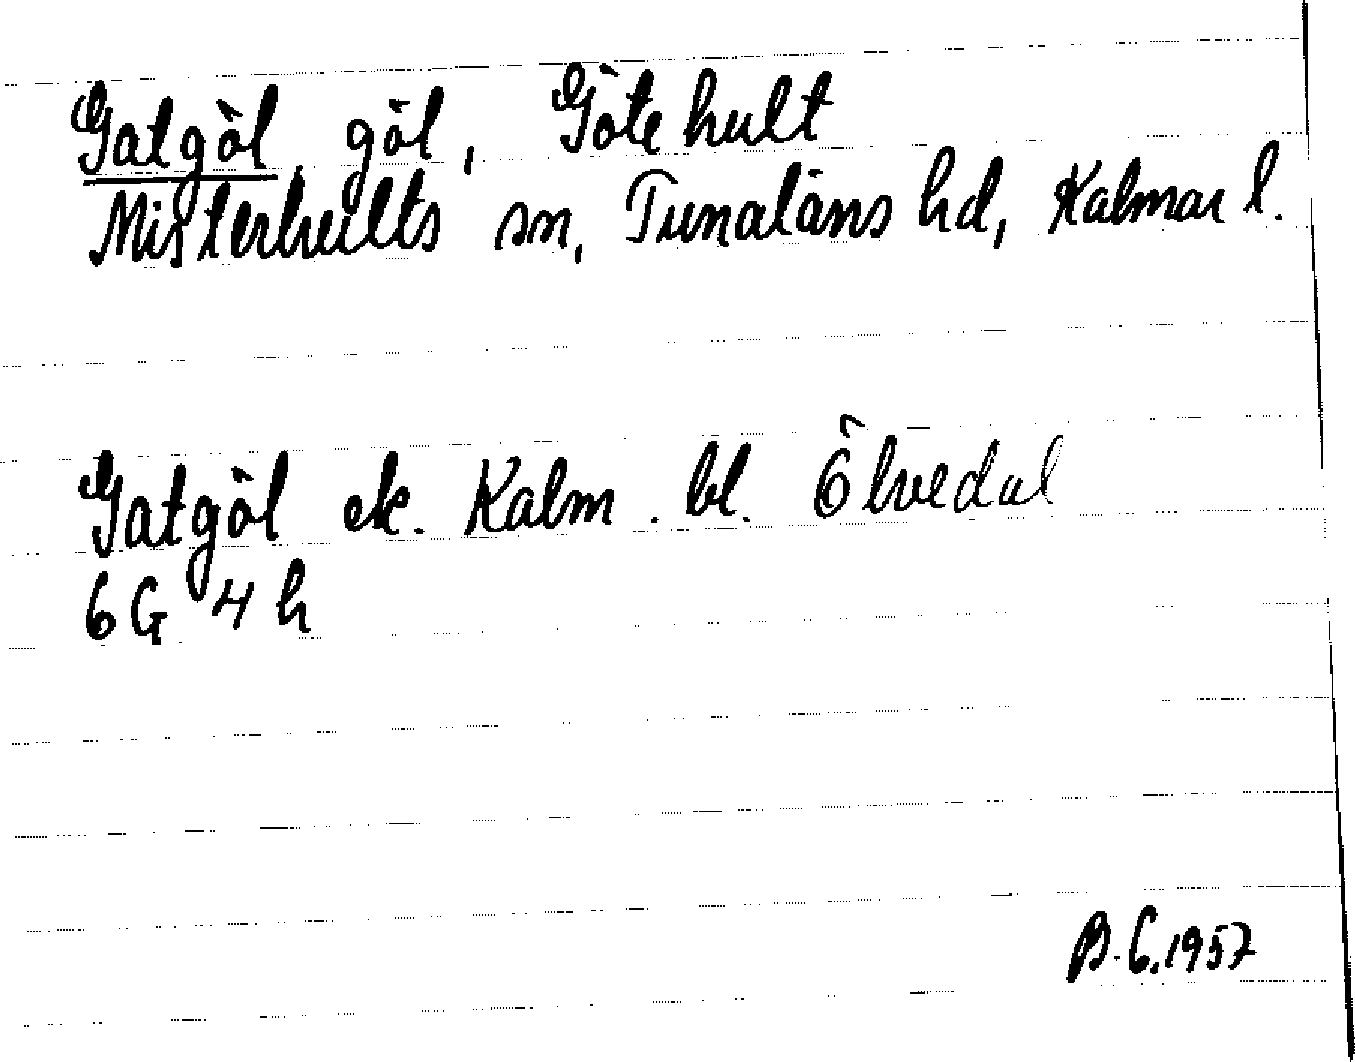 Gatgöl, göl, Götehult
Misterhults sn, Tunaläns hd, Kalmar l.
Gatgöl ek. Kalm. bl. Ölvedal
6G 4h
B.G. 1957